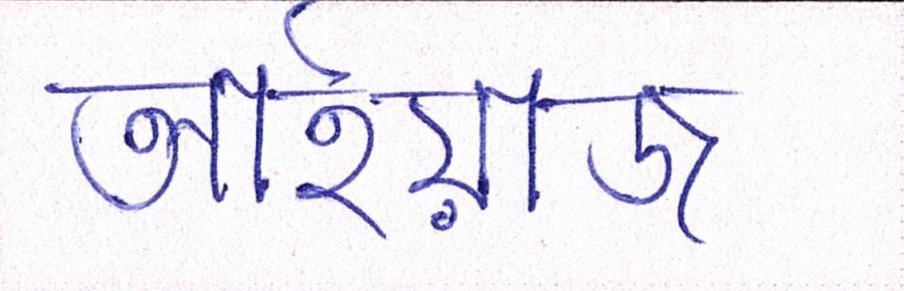 আইয়াজ